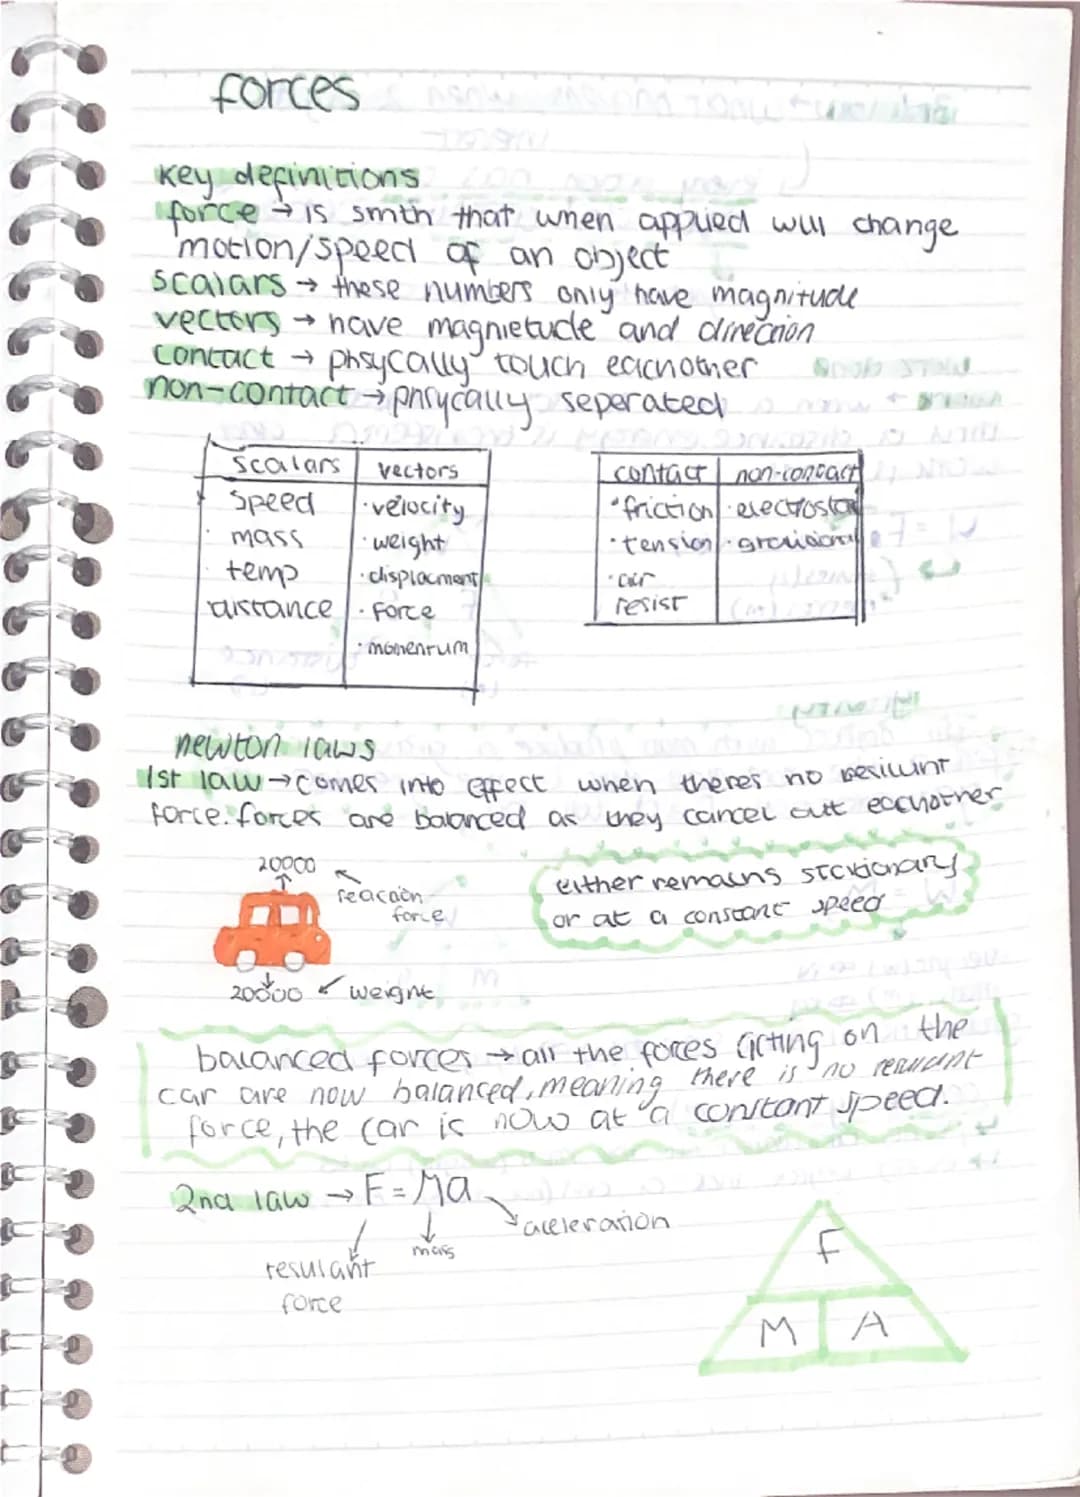 forces
key definitions
force → is smth that when applied will change
motion/speed of an object
scalars → these numbers only have magnitude
vectors → have magnietude and direction
contact → phsycally touch eachother
non-contact → phsycally seperated
scalars vectors
speed · velocity
· mass · weight
· temp · displacment
distance · force
· momentum
contact non-contact
· friction · electrostat
· tension · gravitional
· air
resist
newton laws
1st law → comes into effect when theres no resilunt
force. forces are balanced as they cancel out eachother
20000
reaction
force
either remains stationary
or at a constant speed
20000 weight
balanced forces → all the forces acting on the
car are now balanced, meaning there is no resultant
force, the car is now at a constant speed.
2nd law → F = Ma
aceleration
mass
resulant
force
F
M A